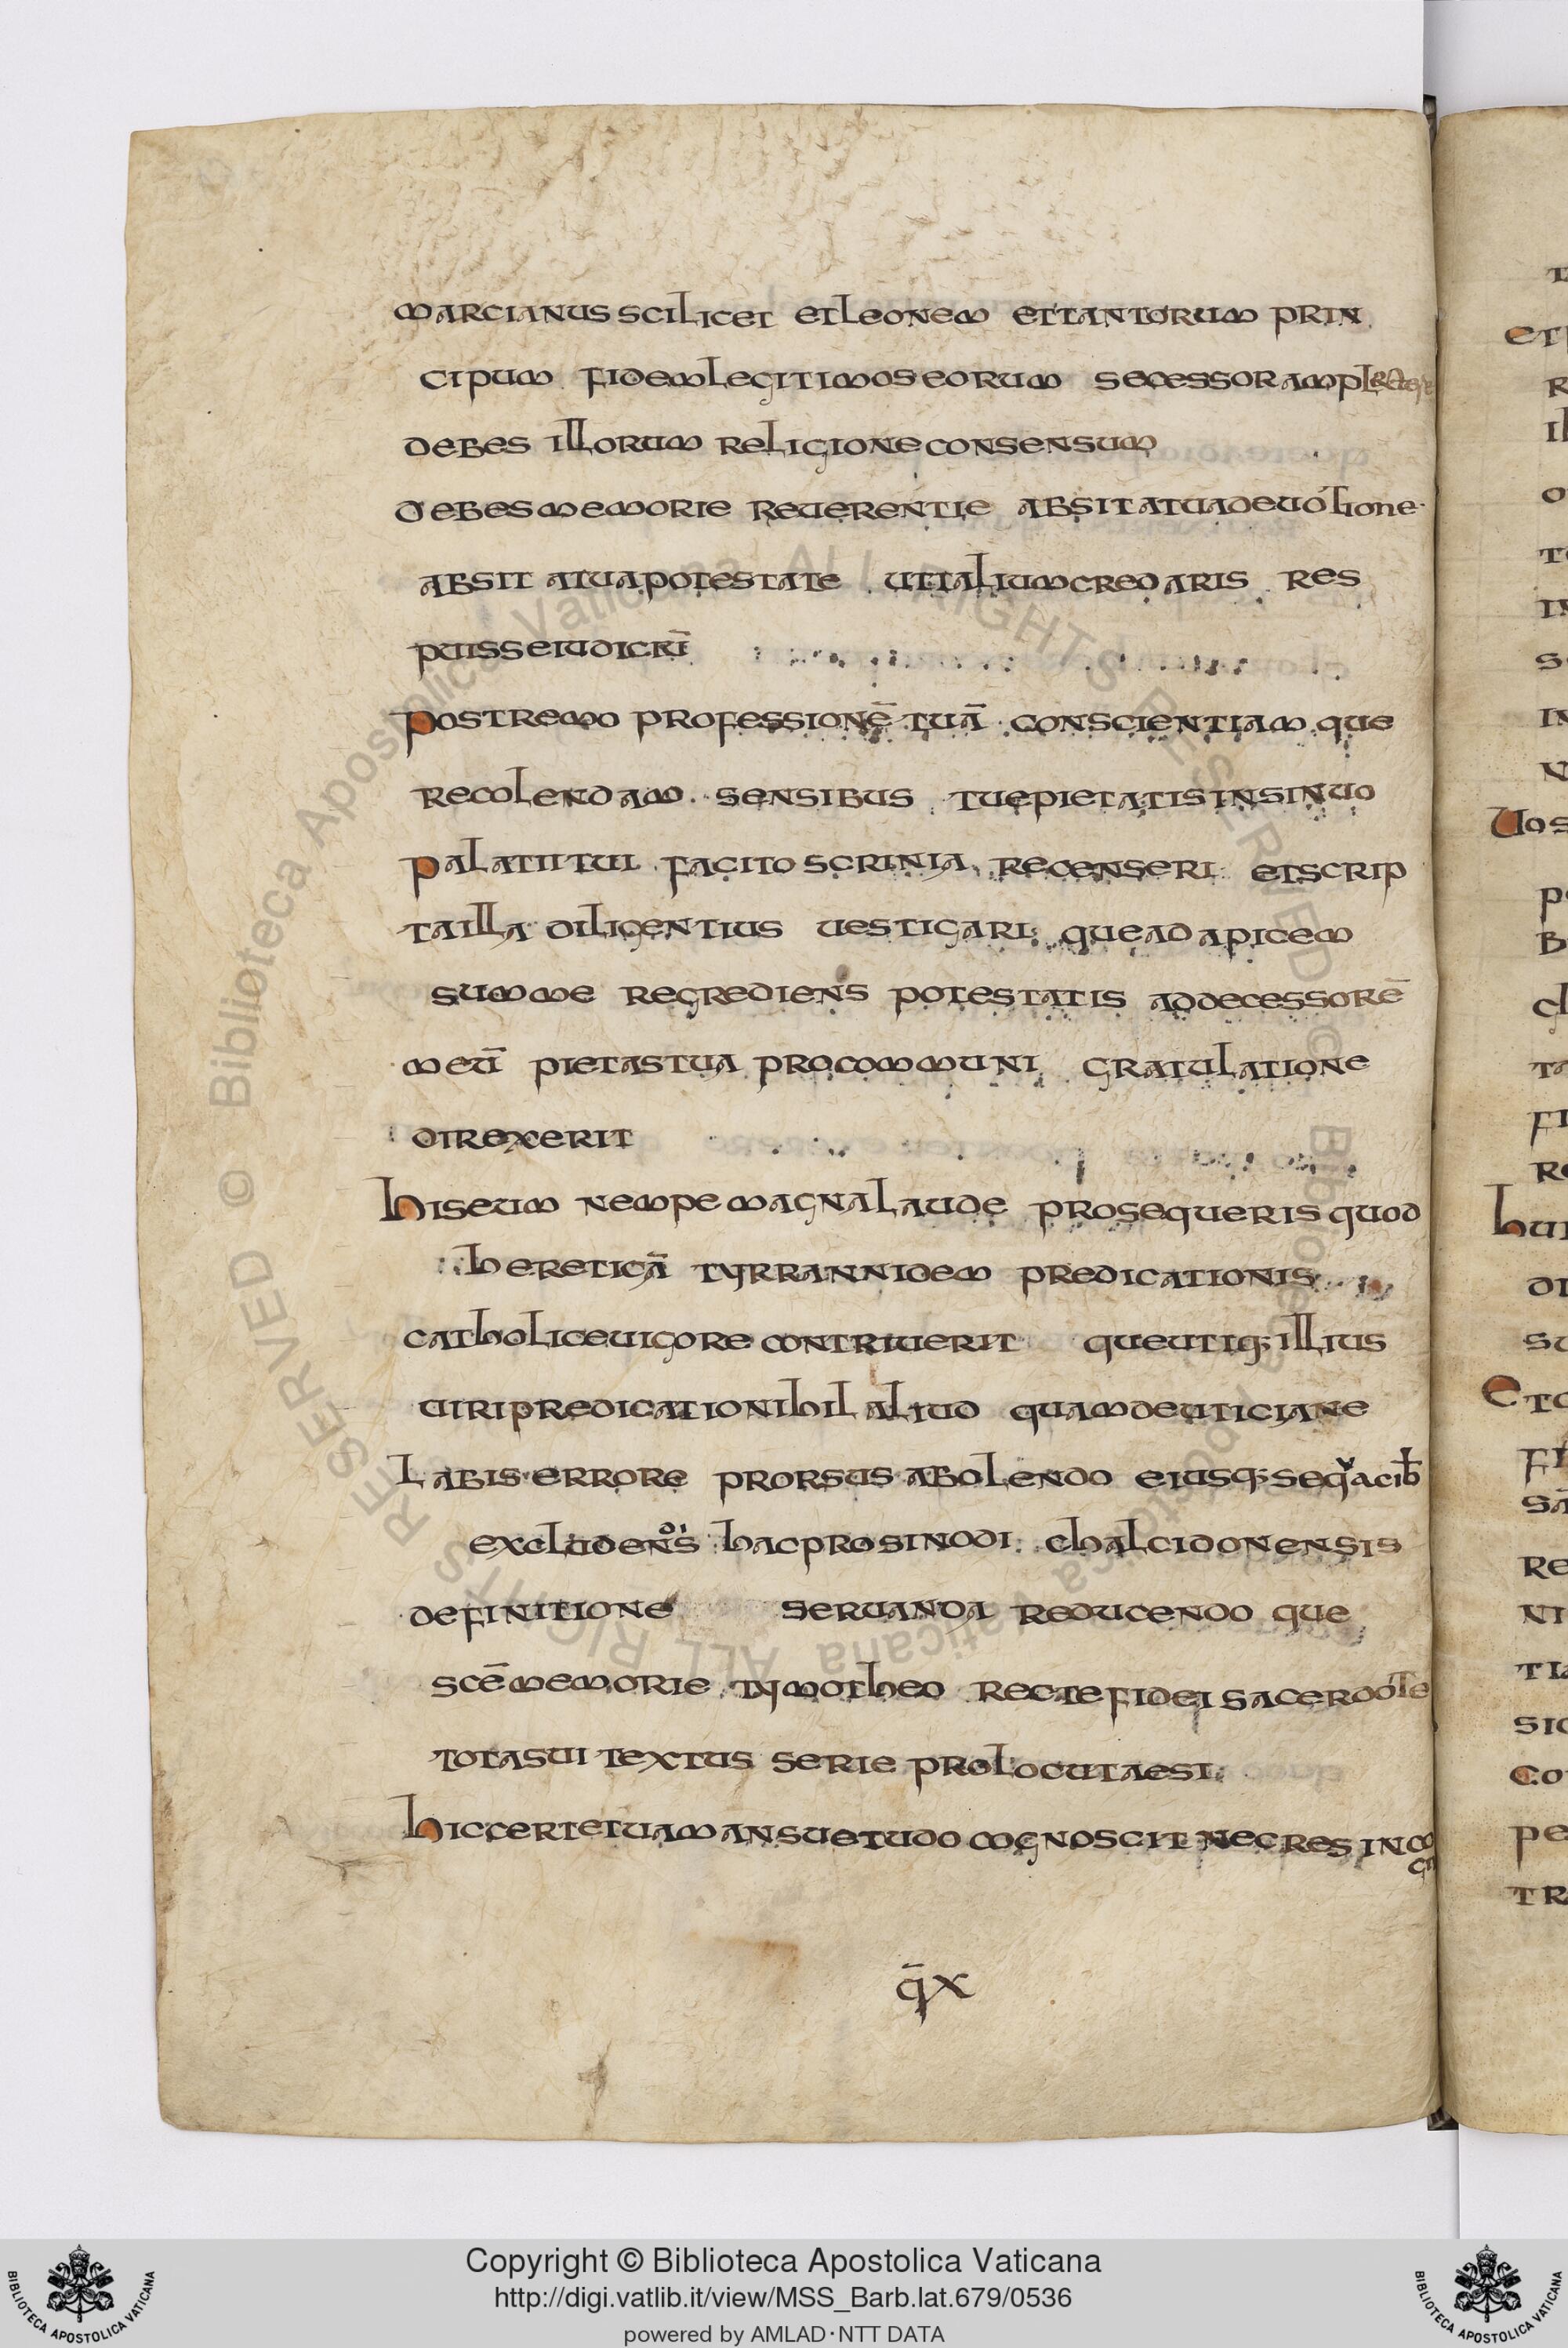 marcianus scilicet et leonem et tantorum prin
cipum fidem legitimos eorum secessor ampl
debes illorum religione consensum
debes memorie reuerentie absit a tua deuotione.
absit a tua potestate ut talium credaris res
puisse iudiciū
postremo professionē tuā conscientiam que
recolendam. sensibus tue pietatis insinuo
palatii tui facito scrinia recenseri et scrip
ta illa diligentius uestigari que ad apicem
summe regrediens potestatis ad decessorē
meū pietas tua pro communi gratulatione
direxerit
his eum nempe magna laude prosequeris quod
hereticā tyrrannidem predicationis
catholice uigore contriuerit que utiq; illius
uiri predicatio nihil aliud quam de uticiane
labis errore prorsus abolendo eiusq; seq̌acib
excludens hac pro sinodi chalcidonensis
definitione seruanda reducendo que
scē memorie tymotheo recte fidei sacerdote
tota sui textus serie prolocuta est
hic certe tua mansuetudo cognoscit nec res inco
gn
q̄ x
Copyright © Biblioteca Apostolica Vaticana
http://digi.vatlib.it/view/MSS_Barb.lat.679/0536
powered by AMLAD·NTT DATA
BIBLIOTECA APOSTOLICA VATICANA
BIBLIOTECA APOSTOLICA VATICANA